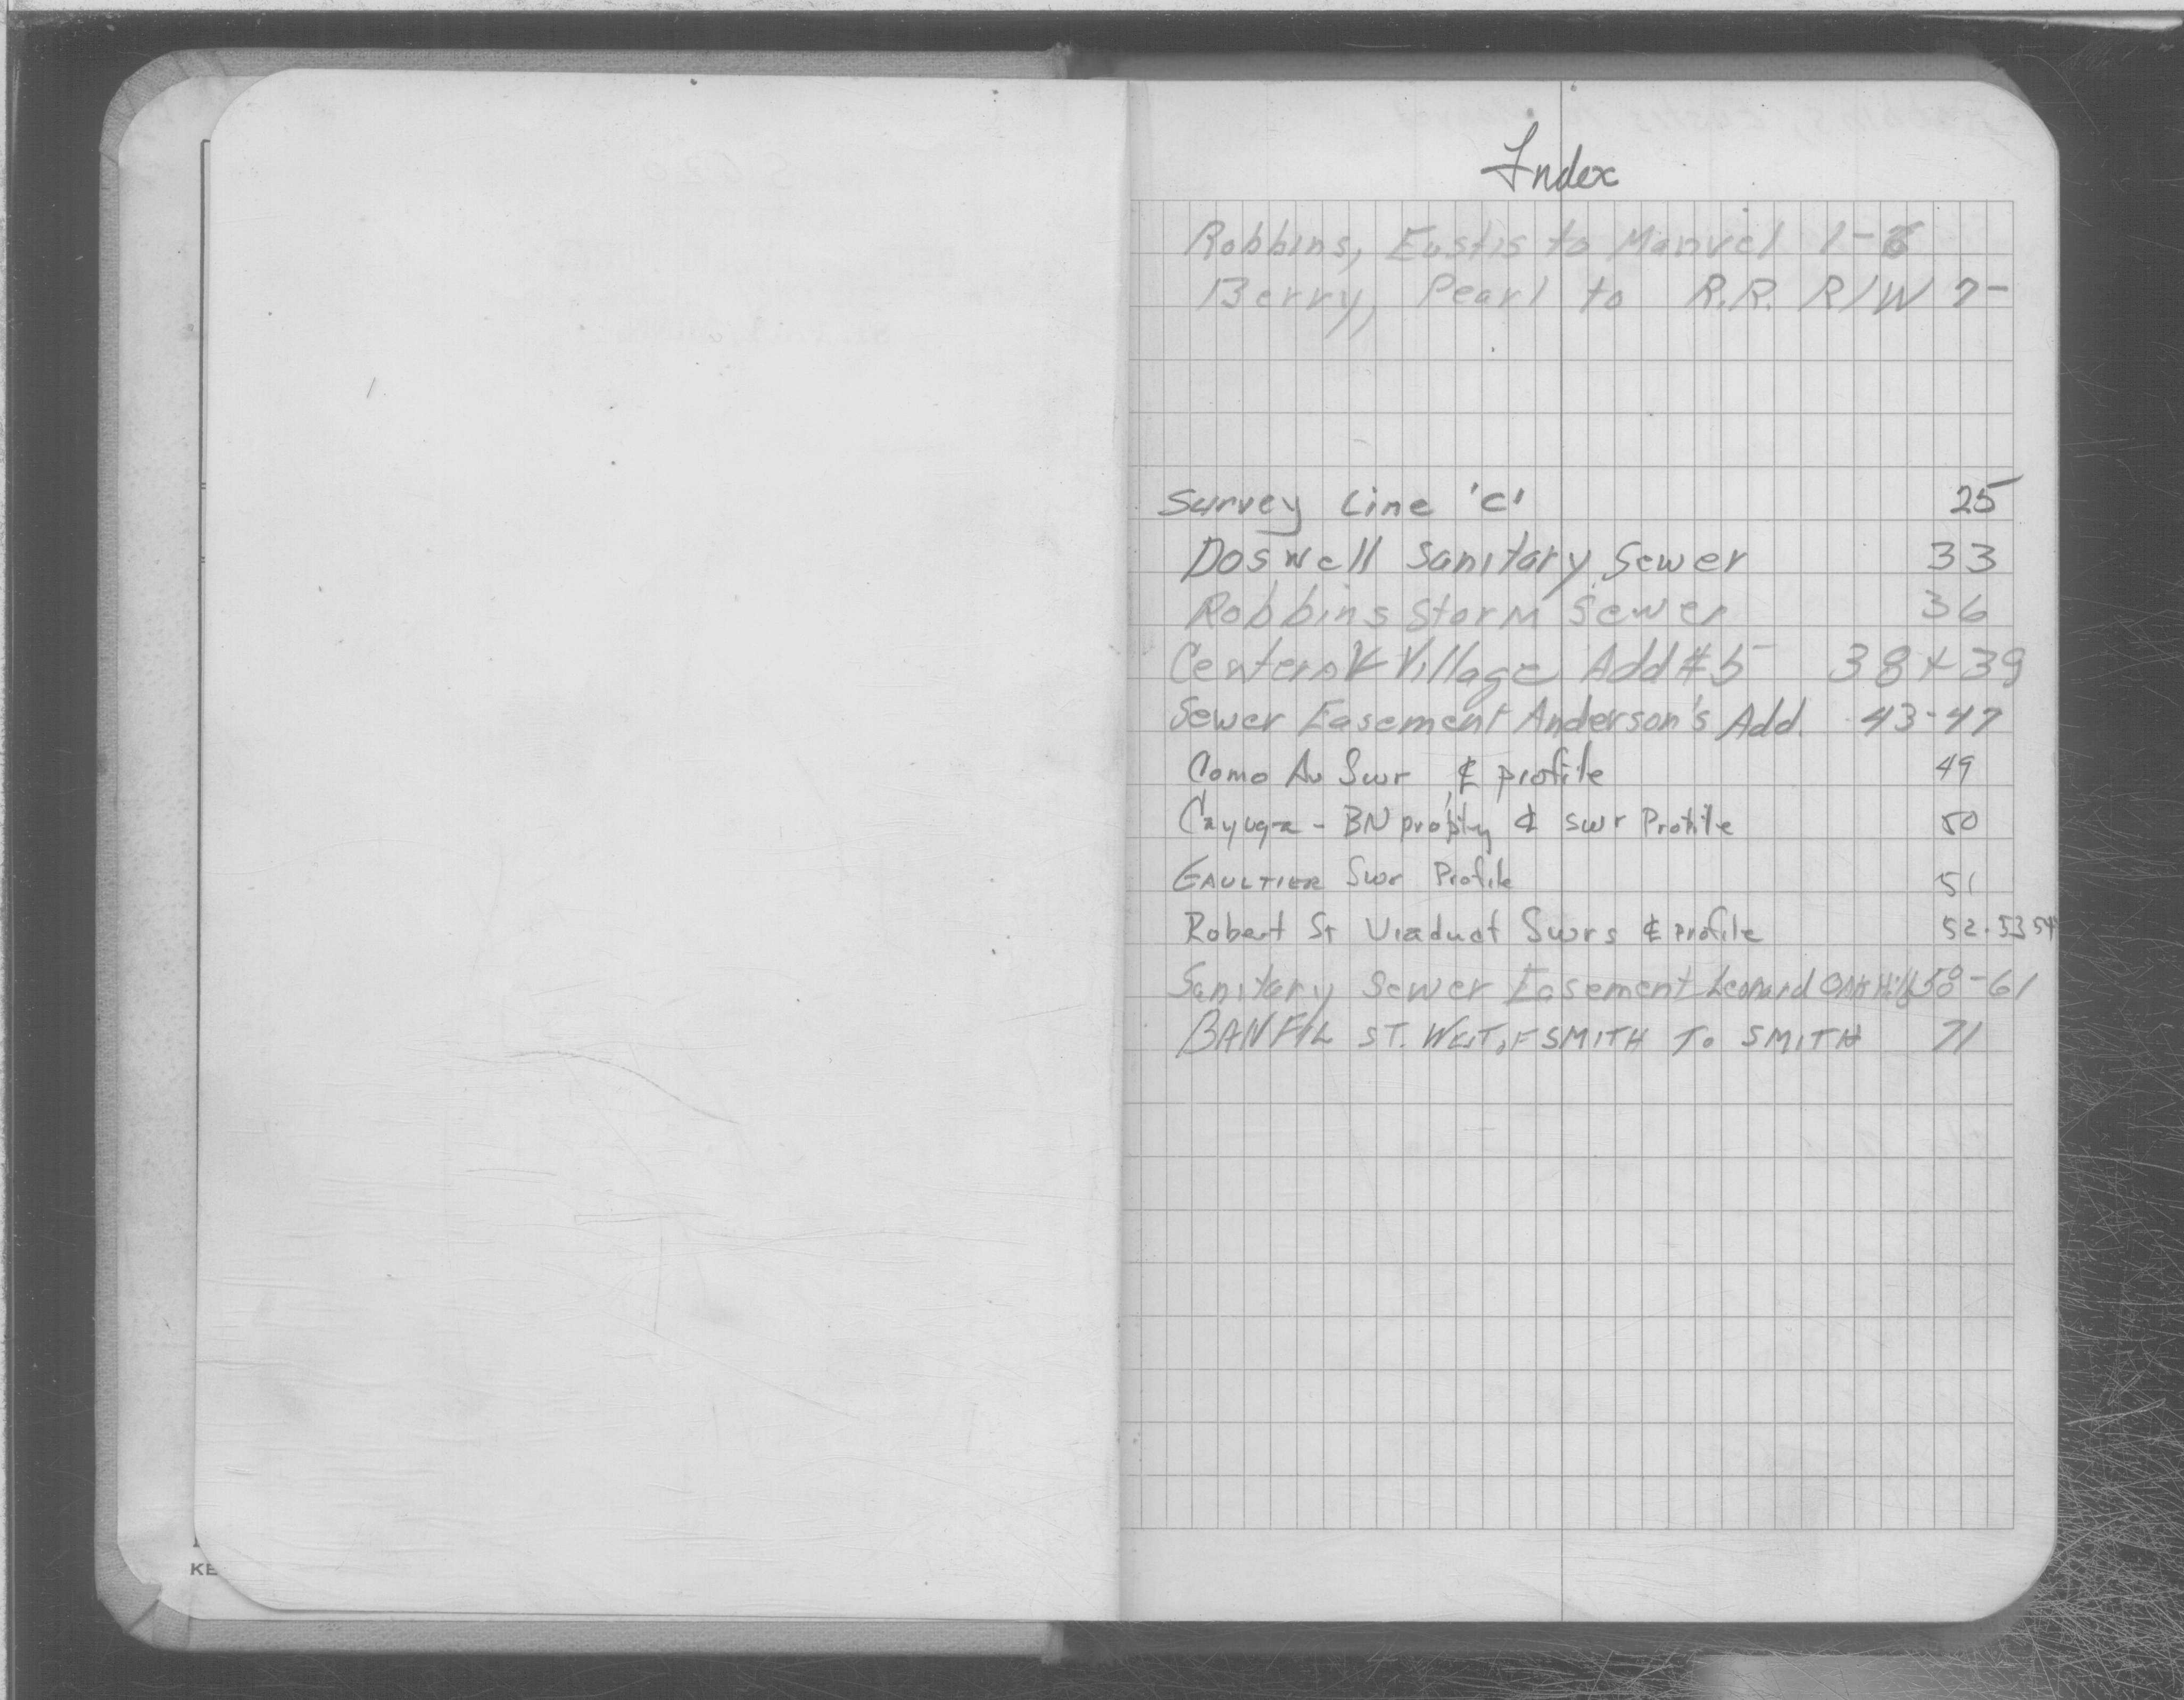 Index
Robbins, Eustis to Manvel 1-6
Berry, Pearl to R.R. R/W 7-
Survey Line 'C' 25
Doswell Sanitary Sewer 33
Robbins Storm Sewer 36
Village Add #5 38 + 39
Sewer Easement Anderson's Add. 43-47
Como Av Swr ℄ profile 49
Cayuga - BN prop'ty ℄ swr Profile 50
GAULTIER Swr Profile 51
Robert St Viaduct Swrs ℄ profile 52.53 54
Sanitary Sewer Easement Leonard Oak Hills 58-61
BANFIL ST. WEST OF SMITH To SMITH 71
KE